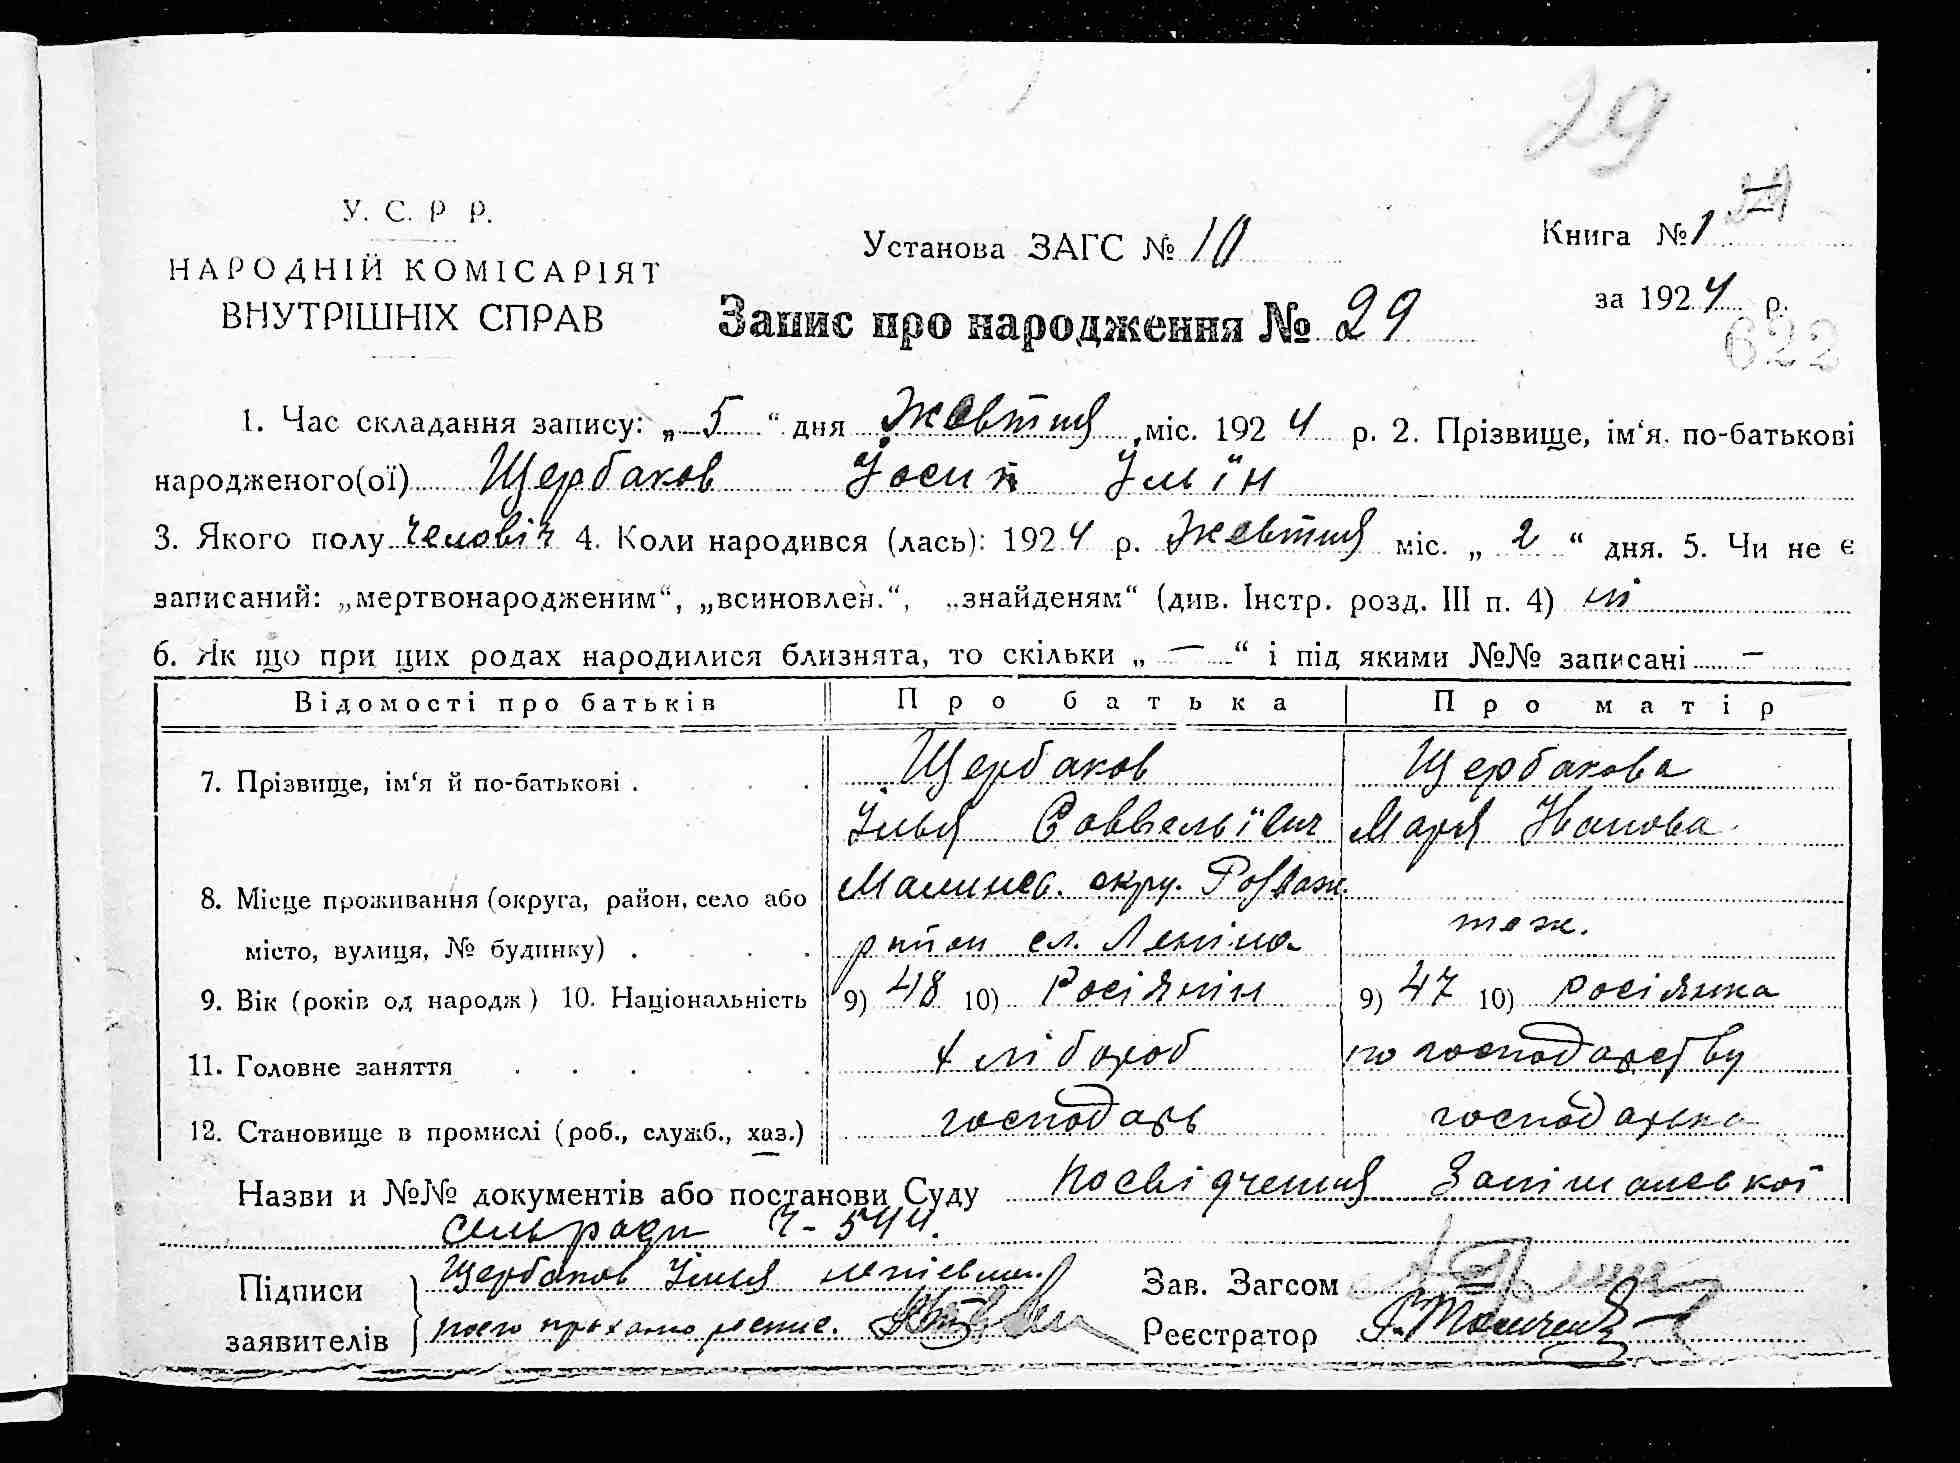 29
У. С. Р Р.
НАРОДНІЙ КОМІСАРІЯТ
ВНУТРІШНІХ СПРАВ
Установа ЗАГС № 10
Книга № 1
за 1924 р.
Запис про народження № 29
622
1. Час складання запису: „ 5 “ дня Жовтня міс. 1924 р. 2. Прізвище, ім‘я. по-батькові
народженого(ої) Щербаков Йосип Ілїн
3. Якого полу человіч 4. Коли народився (лась): 1924 р. Жовтня міс. „ 2 “ дня. 5. Чи не є
записаний: „мертвонародженим“, „всиновлен.“, „знайденям“ (див. Інстр. розд. III п. 4) ні
6. Як що при цих родах народилися близнята, то скільки „ — “ і під якими №№ записані —
Відомості про батьків Про батька Про матір
7. Прізвище, ім‘я й по-батькові . Щербаков Щербакова
Ілья Марія Іванова
8. Місце проживання (округа, район, село або Малинсв. окру. Розваж.
місто, вулиця, № будинку) . район сл. Леніна тож.
9. Вік (років од народж) 10. Національність 9) 48 10) Росіянін 9) 47 10) росіянка
11. Головне заняття хлібороб по господарству
12. Становище в промислі (роб., служб., хаз.) господарь господарька
Назви и №№ документів або постанови Суду Посвідчення
сельради Ч - 544.
Підписи Щербаков Ілья
заявителів
Зав. Загсом
Реєстратор